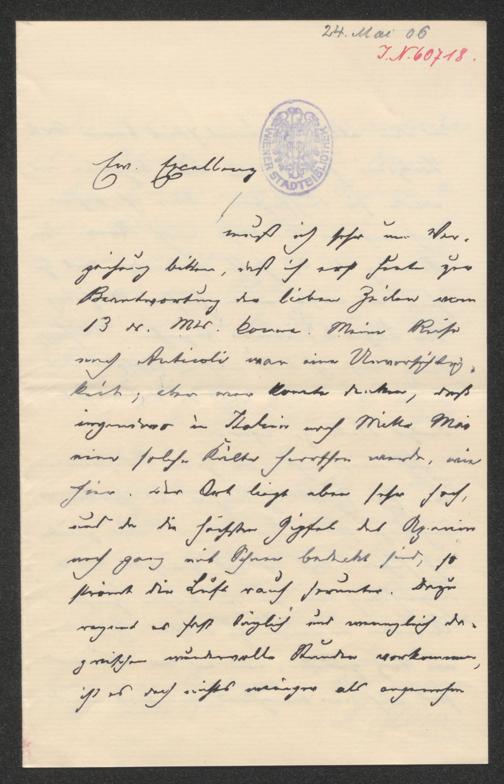 24. Mai 06
I.N. 60718.
WIENER STADTBIBLIOTHEK
Ew. Excellenz
muß ich sehr um Ver-
zeihung bitten, daß ich erst heute zur
Beantwortung der lieben Zeilen vom
13 ds. Mts. komme. Meine Reise
nach Anticoli war eine Unvorsichtig-
keit; aber wer konnte denken, daß
irgendwo in Italien noch Mitte Mai
eine solche Kälte herrschen werde, wie
hier. Der Ort liegt aber sehr hoch,
und da die höchsten Gipfel des Apennin
noch ganz mit Schnee bedeckt sind, so
strömt die Luft rauh herunter. Dazu
regnet es fast täglich und wenngleich da-
zwischen wundervolle Stunden vorkommen,
ist es doch nichts weniger als angenehm